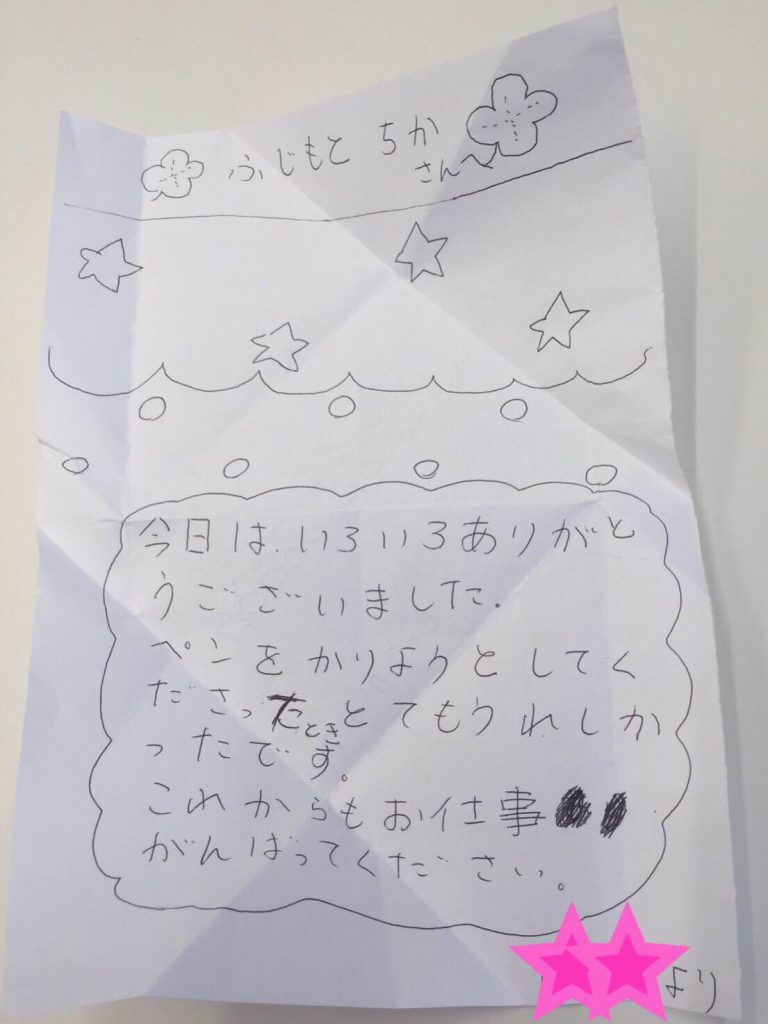 ふじもと ちか
さんへ
今日は、いろいろありがと
うございました.
ペンをかりようとしてく
ださったときとてもうれしか
ったです。
これからもお仕事
がんばってください。
より